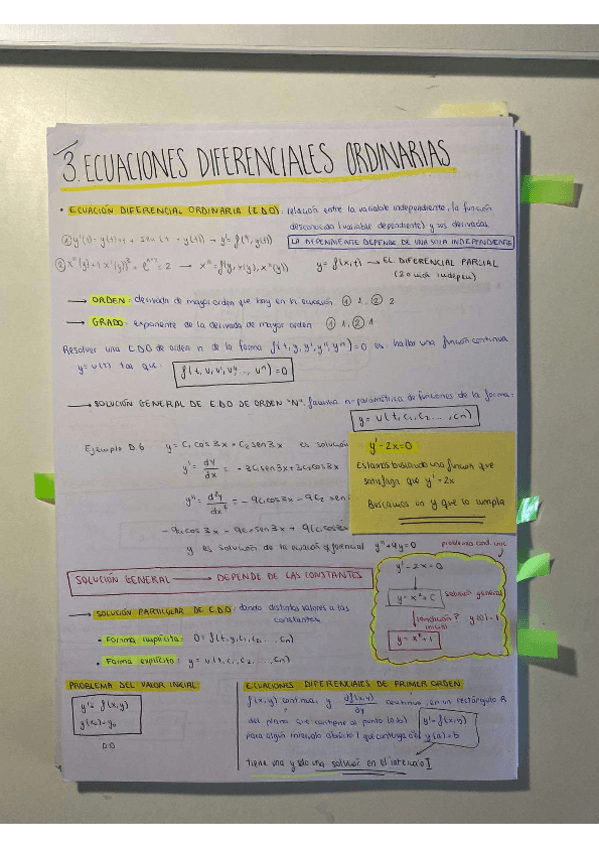 3. ECUACIONES DIFERENCIALES ORDINARIAS
• ECUACIÓN DIFERENCIAL ORDINARIA (E.D.O): relación entre la variable independiente, la función
desconocida (variable dependiente) y sus derivadas.
LA DEPENDIENTE DEPENDE DE UNA SOLA INDEPENDIENTE
y = f(x,t) → EC. DIFERENCIAL PARCIAL
→ ORDEN: derivada de mayor orden que hay en la ecuación ① 1, ② 2
→ GRADO: exponente de la derivada de mayor orden ① 1, ② 1
Resolver una E.D.O de orden n de la forma f(t, y, y', y'', yⁿ) = 0 es hallar una función continua
y = u(t) tal que:
f(t, u, u', u'', ..., uⁿ) = 0
→ SOLUCIÓN GENERAL DE E.D.O DE ORDEN "N": familia n-paramétrica de funciones de la forma:
y = u(t, c₁, c₂, ..., cn)
Ejemplo D.6 y = C₁ cos 3x + C₂ sen 3x es solución
y' = dy/dx = -3C₁ sen 3x + 3C₂ cos 3x
y'' = d²y/dx² = -9C₁ cos 3x - 9C₂ sen
-9C₁ cos 3x - 9C₂ sen 3x + 9(C₁ cos 3x
y es solución de la ecuación diferencial y'' + 9y = 0
y' - 2x = 0
Estamos buscando una función que
satisfaga que y' = 2x
Buscamos un y que lo cumpla
problema cond. inic.
y' - 2x = 0
y = x² + C solución general
¿condición inicial? y(0) = 1
y = x² + 1
SOLUCIÓN GENERAL → DEPENDE DE LAS CONSTANTES
→ SOLUCIÓN PARTICULAR DE E.D.O: dando distintos valores a las
constantes
• Forma implícita: 0 = f(t, y, c₁, c₂, ..., cn)
• Forma explícita: y = u(t, c₁, c₂, ..., cn)
PROBLEMA DEL VALOR INICIAL
y' = f(x,y)
y(x₀) = y₀
ECUACIONES DIFERENCIALES DE PRIMER ORDEN
f(x,y) continua, y df(x,y)/dy continua, en un rectángulo R
del plano que contiene al punto (a,b) y' = f(x,y)
para algún intervalo abierto I que contenga a y(a) = b
tiene una y solo una solución en el intervalo I